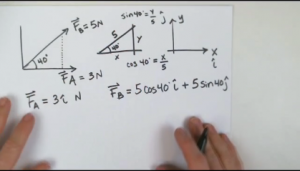 F⃗_B = 5N
40°
F⃗_A = 3N
sin40° = y/5
5
y
40°
x
cos 40° = x/5
y
ĵ
x
î
F⃗_A = 3î N
F⃗_B = 5cos40° î + 5 sin40 ĵ